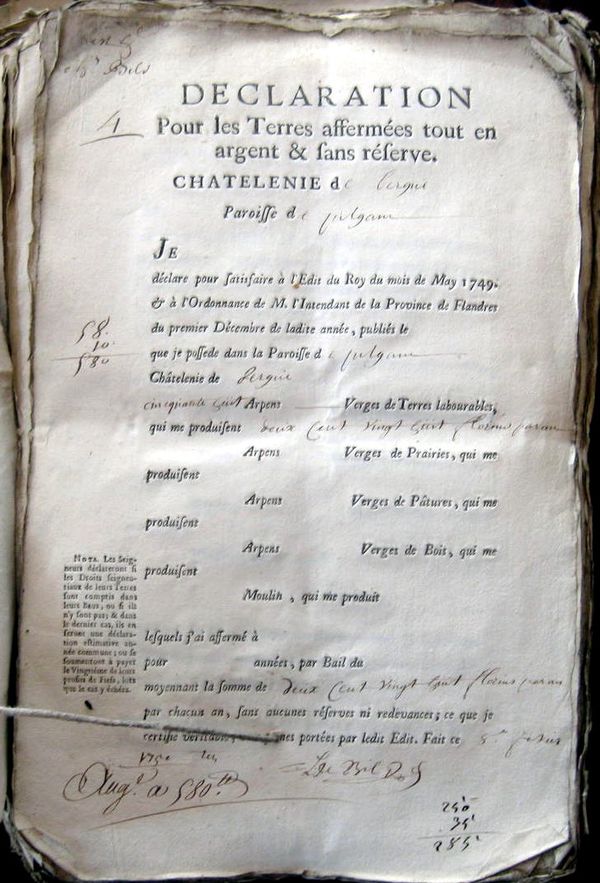 4
DECLARATION
Pour les Terres affermées tout en
argent & sans réserve.
CHATELENIE de bergue
Paroisse de pitgam
JE
déclare pour satisfaire à l'Edit du Roy du mois de May 1749.
& à l'Ordonnance de M. l'Intendant de la Province de Flandres
du premier Décembre de ladite année, publiés le
58.
10.
580
que je possede dans la Paroisse de pitgam
Châtelenie de Bergue
cinquante huit Arpens Verges de Terres labourables,
qui me produisent deux Cent vingt huit florins par an
Arpens Verges de Prairies, qui me
produisent
Arpens Verges de Pâtures, qui me
produisent
Arpens Verges de Bois, qui me
produisent
Moulin, qui me produit
NOTA. Les Seig-
neurs déclareront si
les Droits seigneu-
riaux de leurs Terres
sont compris dans
leurs Baux, ou si ils
n'y sont pas; & dans
le dernier cas, ils en
feront une déclara-
tion estimative an-
née commune; ou se
soumettront à payer
le Vingtiéme de leurs
profits de Fiefs, lors
que le cas y échera.
lesquels j'ai affermé à
pour années, par Bail du
moyennant la somme de deux Cent vingt huit florins par an
par chacun an, sans aucunes réserves ni redevances; ce que je
certifie véritable, portées par ledit Edit. Fait ce
1750
Aug. a 580
250
35
285